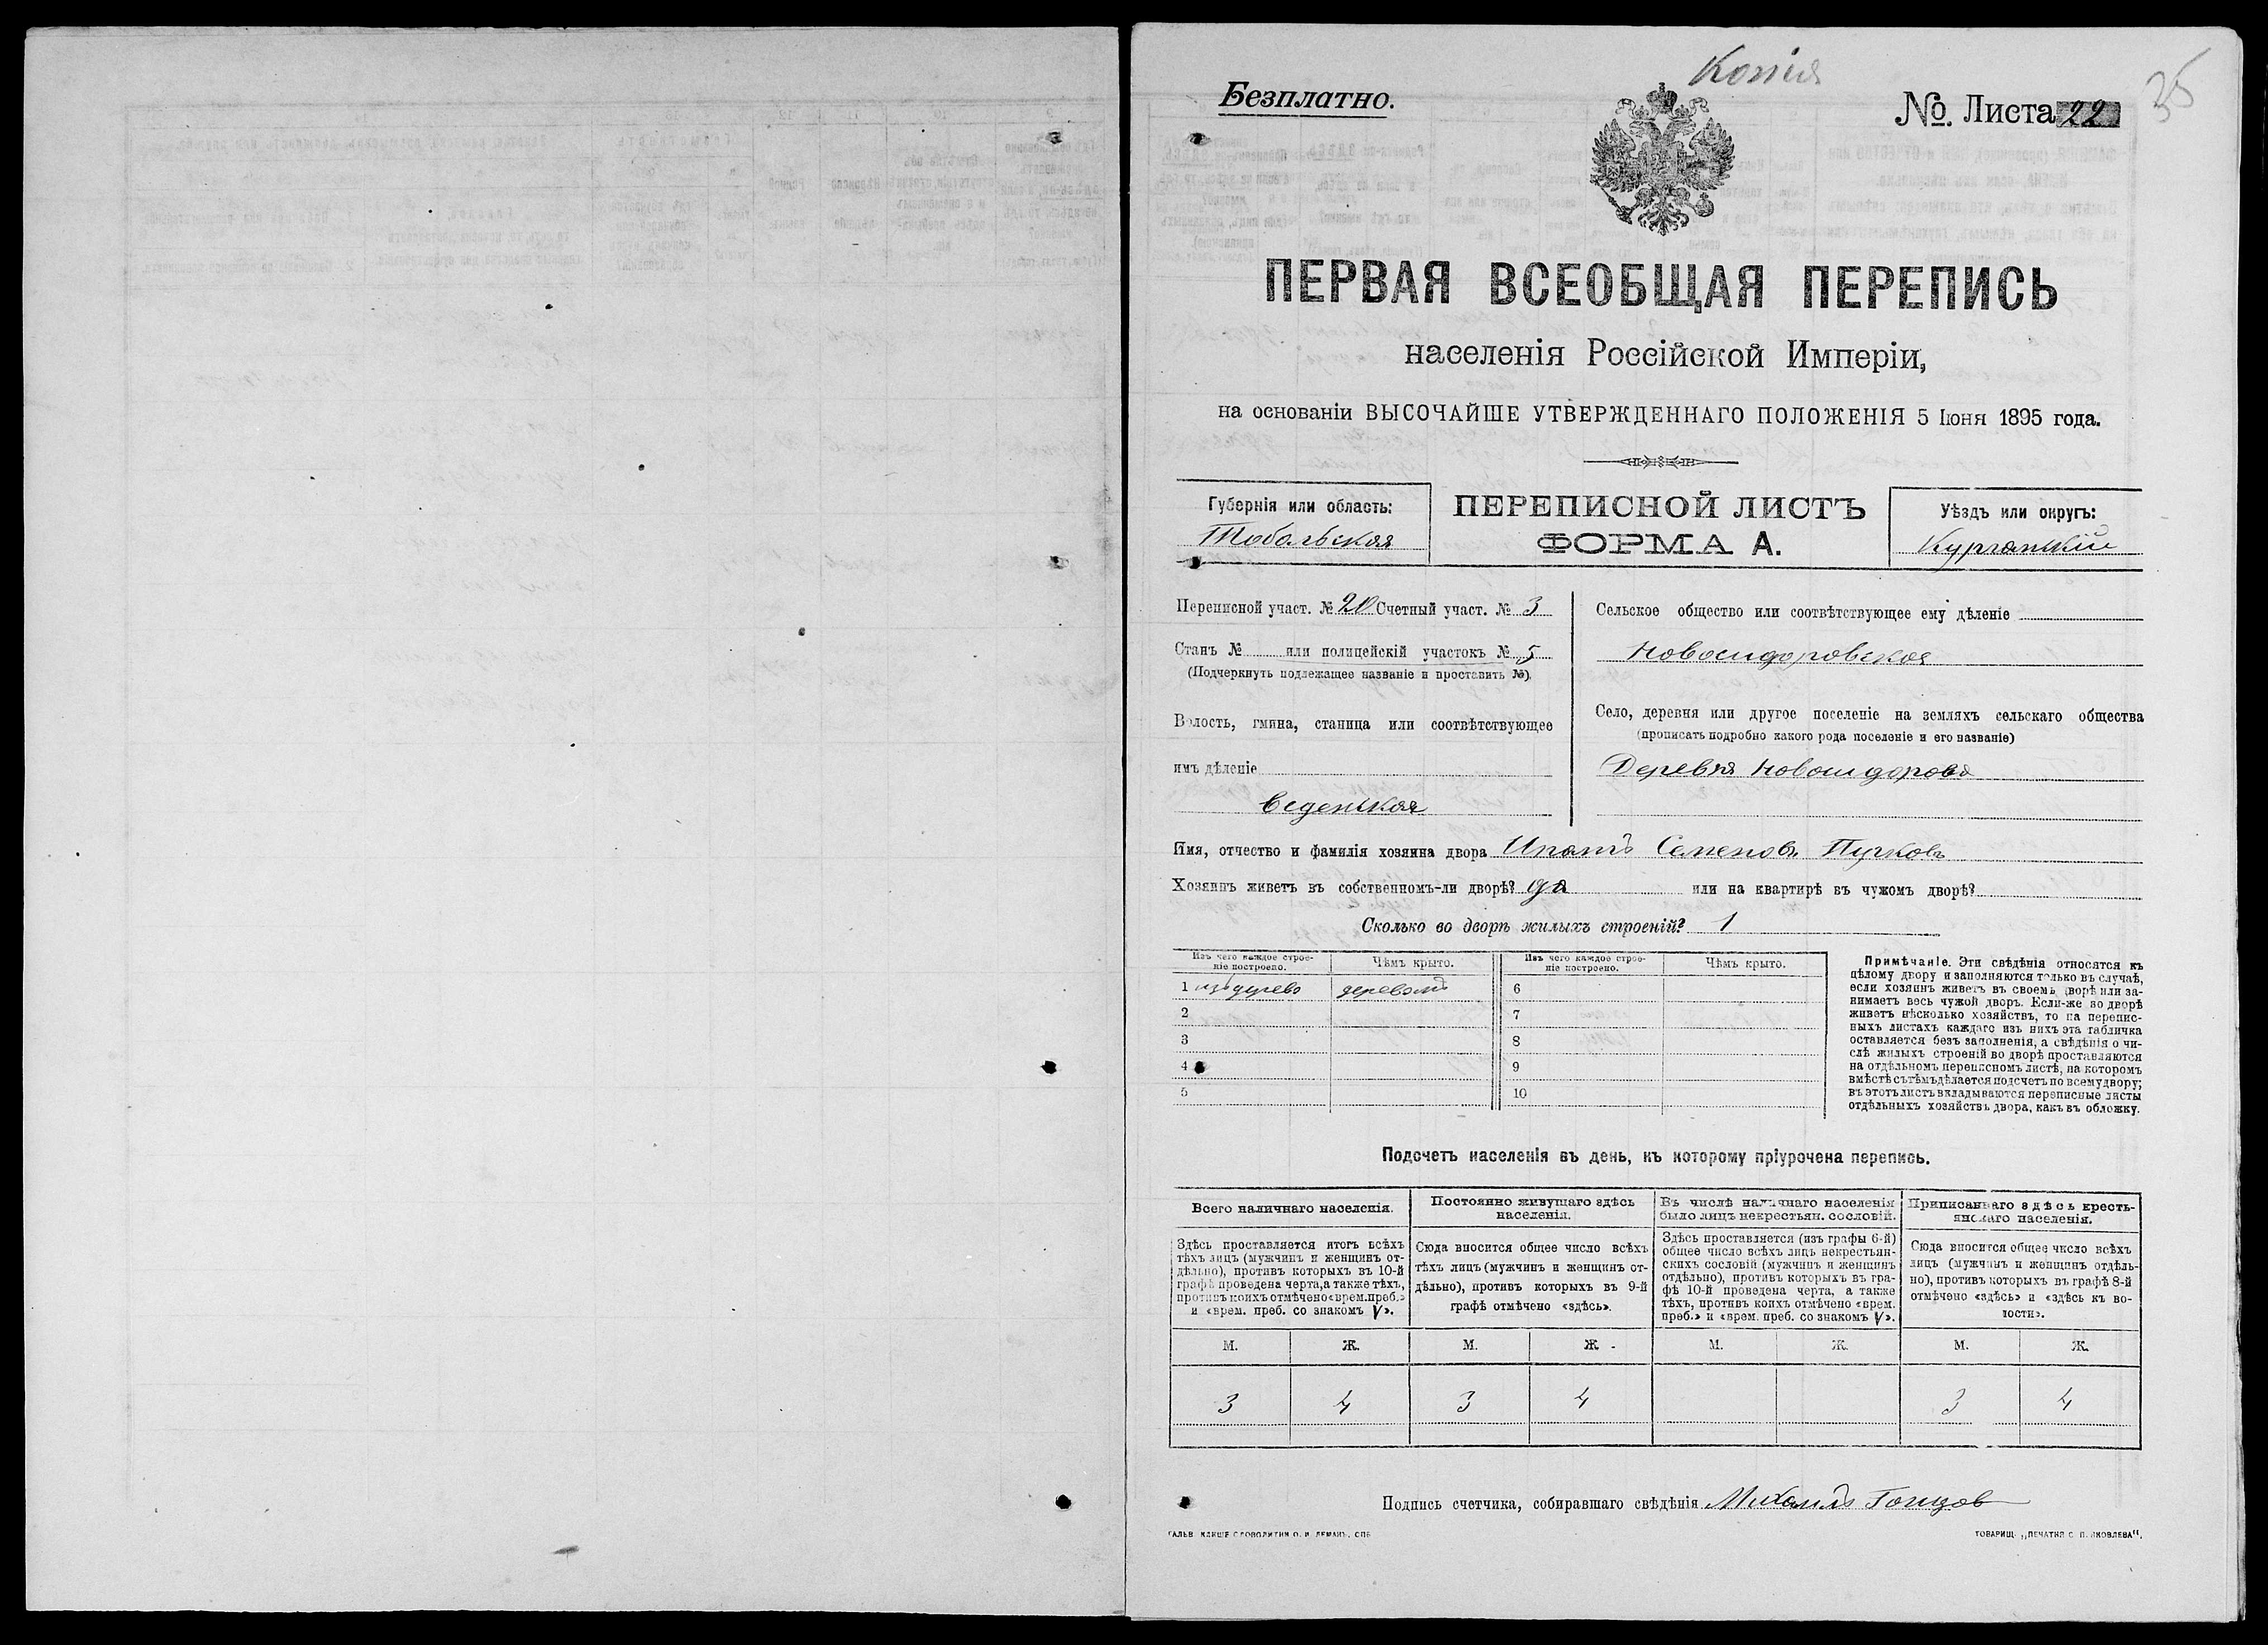 Копія
Безплатно.
№ Листа 22
35
ПЕРВАЯ ВСЕОБЩАЯ ПЕРЕПИСЬ
населенія Россійской Имперіи,
на основаніи ВЫСОЧАЙШЕ УТВЕРЖДЕННАГО ПОЛОЖЕНІЯ 5 Іюня 1895 года.
Губернія или область:
Тобольская
ПЕРЕПИСНОЙ ЛИСТЪ
ФОРМА А.
Уѣздъ или округъ:
Курганскій
Переписной участ. № 20 Счетный участ. № 3
Станъ № или полицейскій участокъ № 5
(Подчеркнуть подлежащее названіе и проставить №)
Волость, гмина, станица или соотвѣтствующее
имъ дѣленіе
Веденская
Сельское общество или соотвѣтствующее ему дѣленіе
Новосидоровская
Село, деревня или другое поселеніе на земляхъ сельскаго общества
(прописать подробно какого рода поселеніе и его названіе)
Деревня Новосидорова
Имя, отчество и фамилія хозяина двора Ипатъ Семеновъ Пучковъ
Хозяинъ живетъ въ собственномъ-ли дворѣ? да или на квартирѣ въ чужомъ дворѣ?
Сколько во дворѣ жилыхъ строеній? 1
Изъ чего каждое строе-
ніе построено.
Чѣмъ крыто.
Изъ чего каждое строе-
ніе построено.
Чѣмъ крыто.
1 изъ дерева деревомъ 6
2 7
3 8
4 9
5 10
Примѣчаніе. Эти свѣдѣнія относятся къ
цѣлому двору и заполняются только въ случаѣ,
если хозяинъ живетъ въ своемъ дворѣ или за-
нимаетъ весь чужой дворъ. Если-же во дворѣ
живетъ нѣсколько хозяйствъ, то на перепис-
ныхъ листахъ каждаго изъ нихъ эта табличка
оставляется безъ заполненія, а свѣдѣнія о чи-
слѣ жилыхъ строеній во дворѣ проставляются
на отдѣльномъ переписномъ листѣ, на которомъ
вмѣстѣ съ тѣмъ дѣлается подсчетъ по всему двору;
въ этотъ листъ вкладываются переписные листы
отдѣльныхъ хозяйствъ двора, какъ въ обложку.
Подсчетъ населенія въ день, къ которому пріурочена перепись.
Всего наличнаго населенія.
Постоянно живущаго здѣсь
населенія.
Въ числѣ наличнаго населенія
было лицъ некрестьян. сословій.
Приписаннаго здѣсь кресть-
янскаго населенія.
Здѣсь проставляется итогъ всѣхъ
тѣхъ лицъ (мужчинъ и женщинъ от-
дѣльно), противъ которыхъ въ 10-й
графѣ проведена черта, а также тѣхъ,
противъ коихъ отмѣчено «врем. преб.»
и «врем. преб. со знакомъ V».
Сюда вносится общее число всѣхъ
тѣхъ лицъ (мужчинъ и женщинъ от-
дѣльно), противъ которыхъ въ 9-й
графѣ отмѣчено «здѣсь».
Здѣсь проставляется (изъ графы 6-й)
общее число всѣхъ лицъ некрестьян-
скихъ сословій (мужчинъ и женщинъ
отдѣльно), противъ которыхъ въ гра-
фѣ 10-й проведена черта, а также
тѣхъ, противъ коихъ отмѣчено «врем.
преб.» и «врем. преб. со знакомъ V».
Сюда вносится общее число всѣхъ
лицъ (мужчинъ и женщинъ отдѣль-
но), противъ которыхъ въ графѣ 8-й
отмѣчено «здѣсь» и «здѣсь къ во-
лости».
М. Ж. М. Ж. М. Ж. М. Ж.
3 4 3 4 3 4
Подпись счетчика, собиравшаго свѣдѣнія Михаилъ Гонцов
ГАЛЬВ. КЛИШЕ СЛОВОЛИТНИ О. И. ЛЕМАНЪ, СПБ
ТОВАРИЩ. „ПЕЧАТНЯ С. П. ЯКОВЛЕВА“.